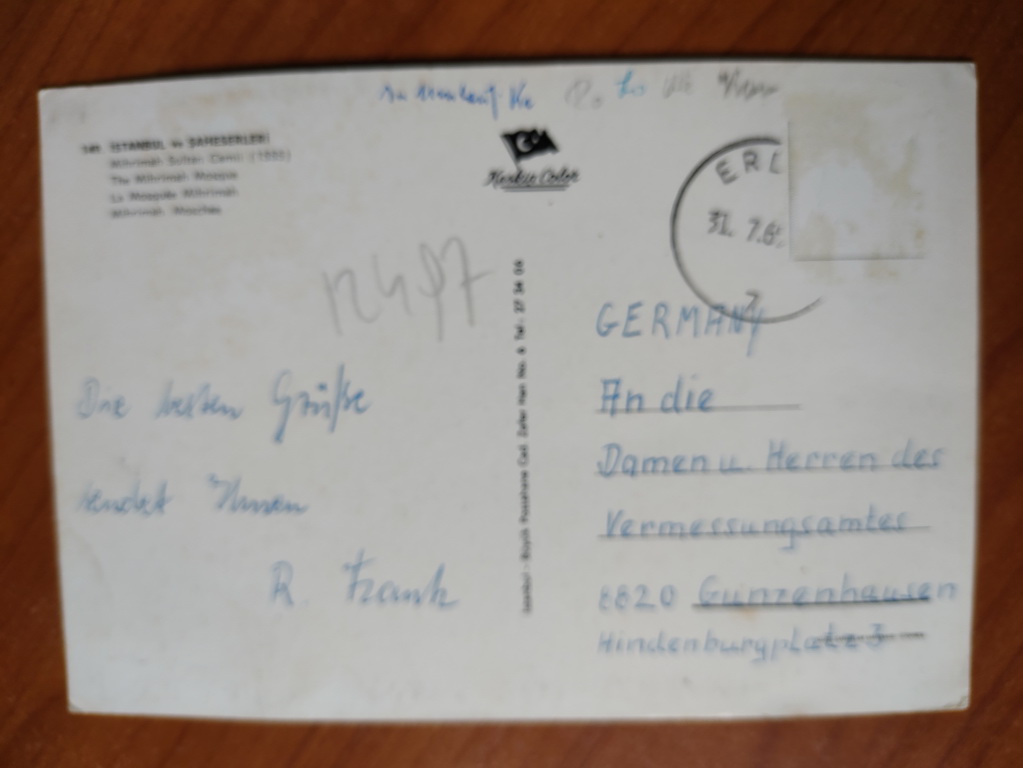 İSTANBUL ve ŞAHESERLERİ
Mihrimah Sultan Camii (1555)
The Mihrimah Mosque
La Mosquée Mihrimah
Mihrimah Moschee
Keskin Color
ERL
31. 7.6
12497
İstanbul - Büyük Postahane Cad. Zafer Han No. 6 Tel: 27 34 06
Die besten Grüße
sendet Ihnen
R. Frank
GERMANY
An die
Damen u. Herren des
Vermessungsamtes
8820 Gunzenhausen
Hindenburgplatz 3